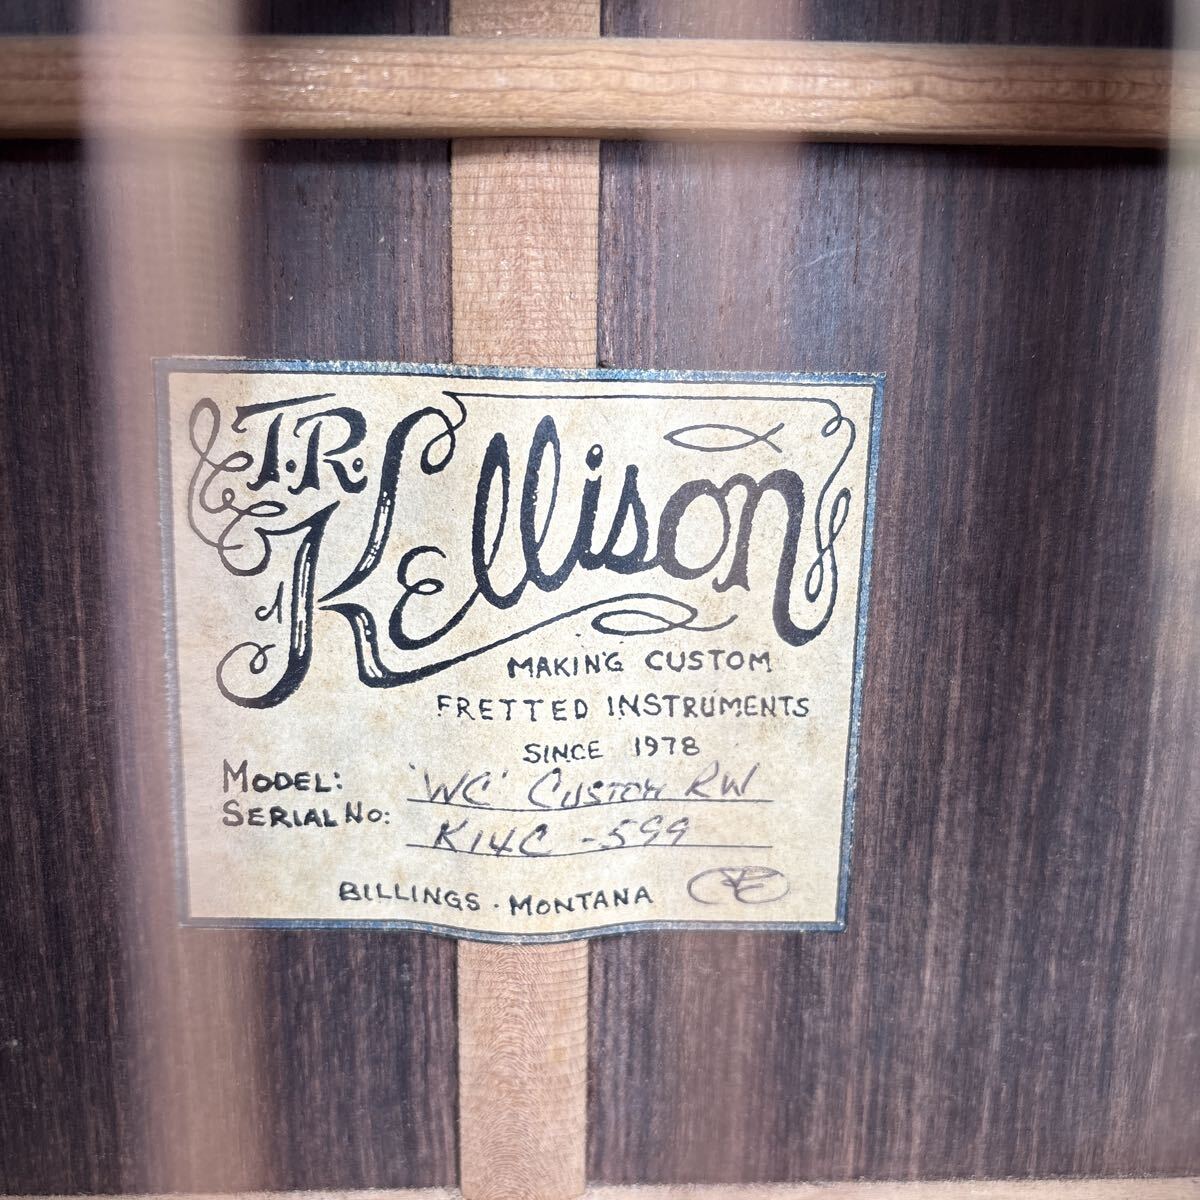 T.R. Kellison
MAKING CUSTOM
FRETTED INSTRUMENTS
SINCE 1978
MODEL: 'WC' CUSTOM RW
SERIAL NO: K14C-599
BILLINGS · MONTANA